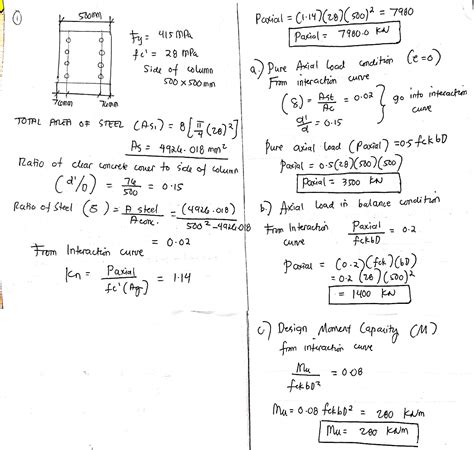 ①
500mm
Fy = 415 MPa
fc' = 28 MPa
Side of column
500 x 500 mm
76mm
76mm
TOTAL AREA OF STEEL (As,) = 8[π/4 (28)²]
As = 4926.018 mm²
Ratio of clear concrete cover to side of column
(d'/D) = 76/500 = 0.15
Ratio of Steel (δ) = A steel/A conc. = (4926.018)/500²-4926.018
= 0.02
From Interaction curve
Kn = Paxial/fc'(Ag) = 1.14
Paxial = (1.14)(28)(500)² = 7980
Paxial = 7980.0 KN
a.) Pure Axial Load condition (e=0)
From interaction curve
(δ) = Ast/Ac = 0.02 } go into interaction curve
d'/d = 0.15
Pure axial load (Paxial) = 0.5 fck bD
Paxial = 0.5(28)(500)(500)
Paxial = 3500 KN
b.) Axial Load in balance condition
From Interaction curve Paxial/fckbD = 0.2
Paxial = (0.2)(fck)(bD)
= 0.2 (28)(500)²
= 1400 KN
c.) Design Moment Capacity (M)
from interaction curve
Mu/fckbD² = 0.08
Mu = 0.08 fckbD² = 280 KNm
Mu = 280 KNm